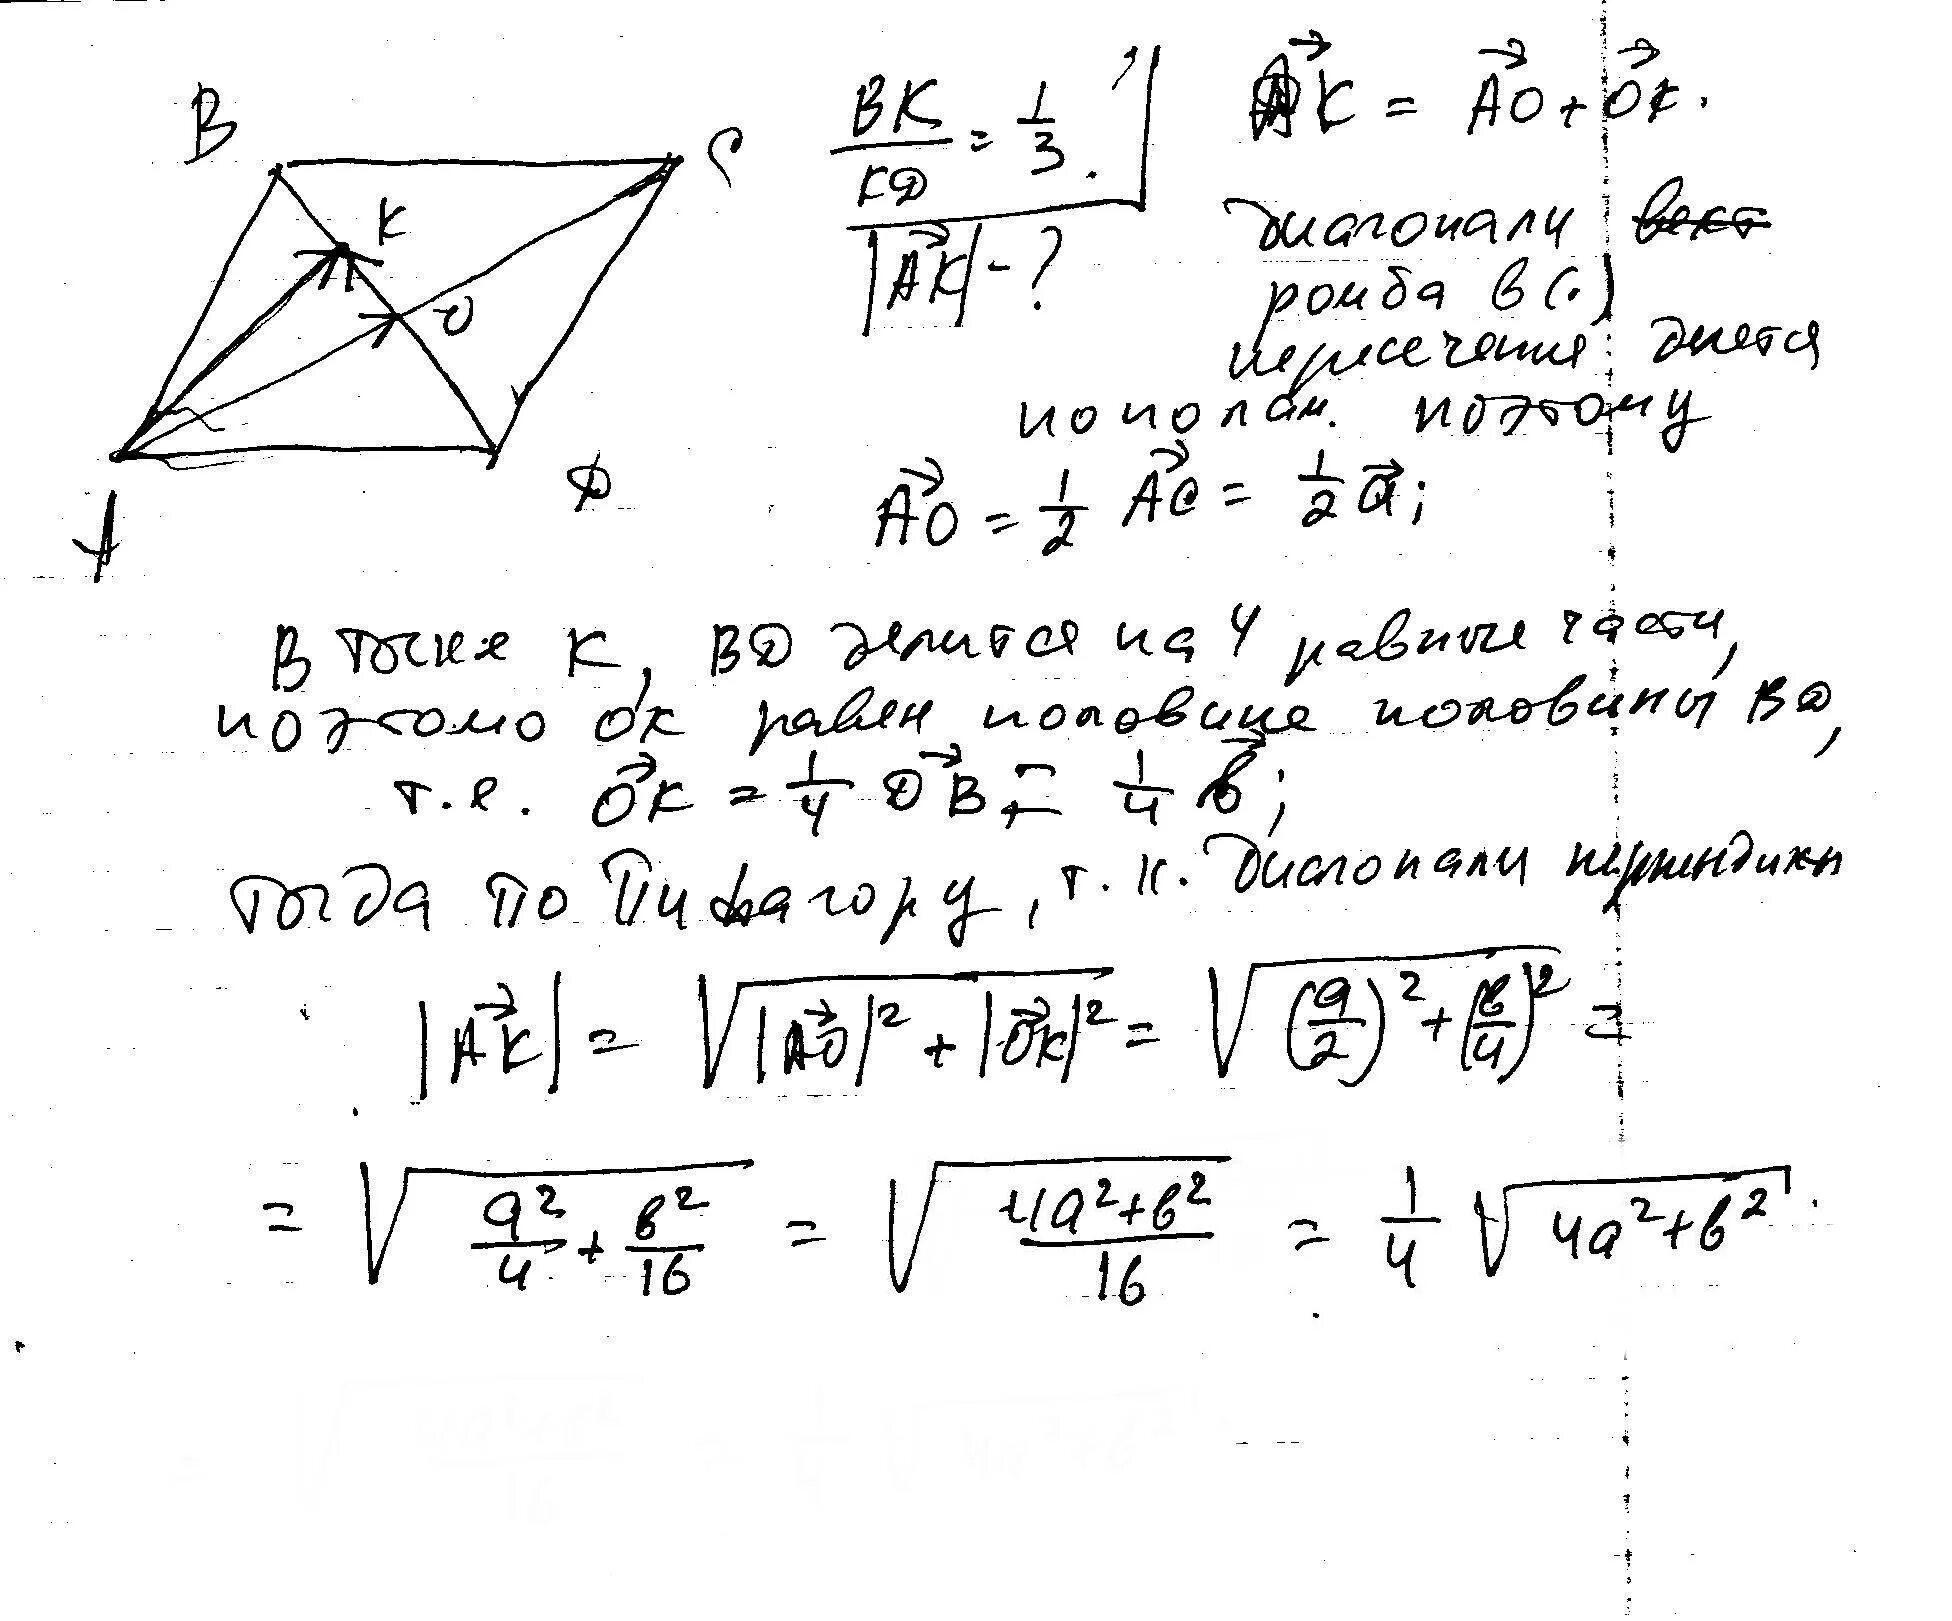 B
C
K
O
A
D
BK/KD = 1/3.
|AK⃗| - ?
AK⃗ = AO⃗ + OK⃗.
диагонали вект
ромба в (·)
пересечения делятся
пополам. поэтому
AO⃗ = 1/2 AC⃗ = 1/2 a⃗;
В точке K, BD делится на 4 равные части,
поэтому OK равен половине половины BD,
т.е. OK⃗ = 1/4 DB⃗ = 1/4 b⃗;
Тогда по Пифагору, т.к. диагонали перпендикул
|AK⃗| = √(|AO⃗|² + |OK⃗|²) = √((a/2)² + (b/4)²) =
= √(a²/4 + b²/16) = √((4a²+b²)/16) = 1/4 √(4a²+b²).